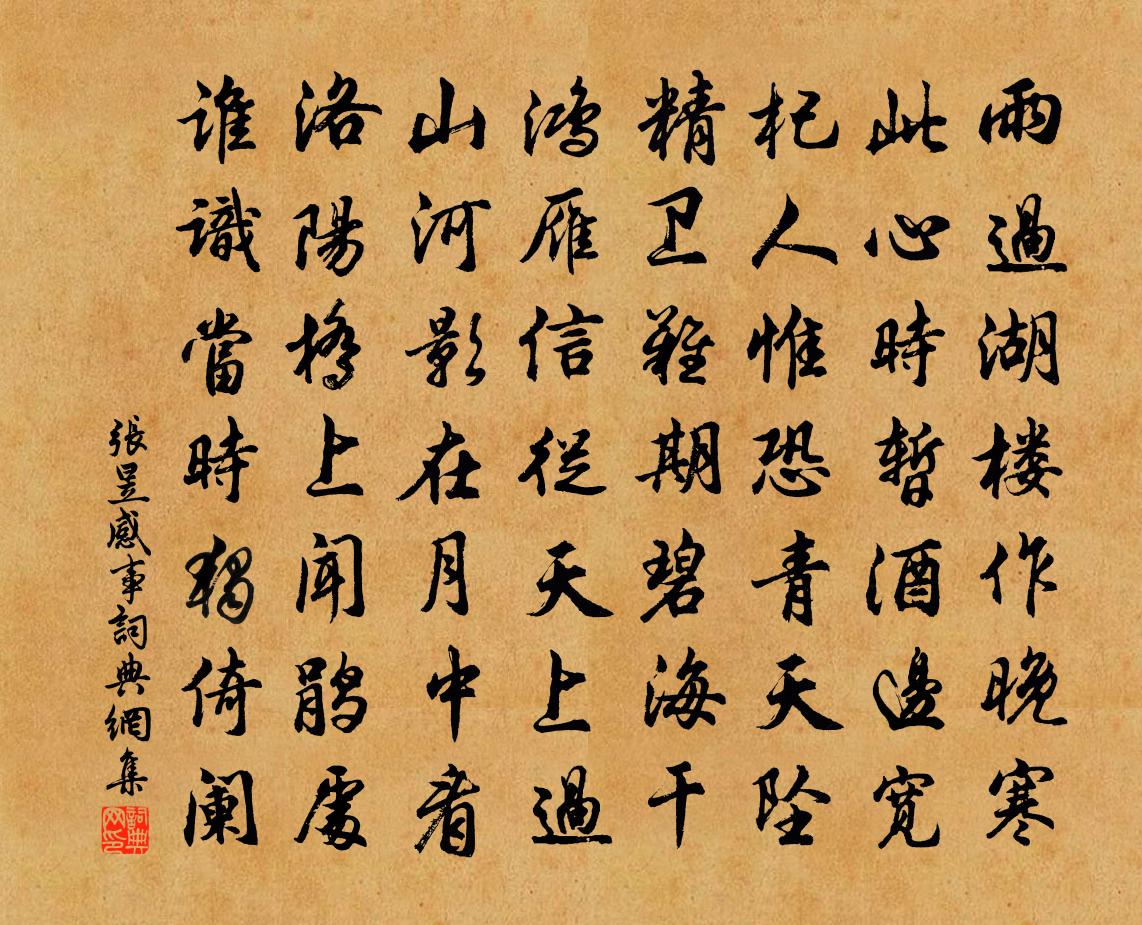 雨過湖楼作晚寒
此心時暫酒邊寬
杞人惟恐青天坠
精卫難期碧海干
鸿雁信從天上過
山河影在月中看
洛陽橋上聞鹃處
誰識當時獨倚阑
張昱感事詞典網集
詞典网印